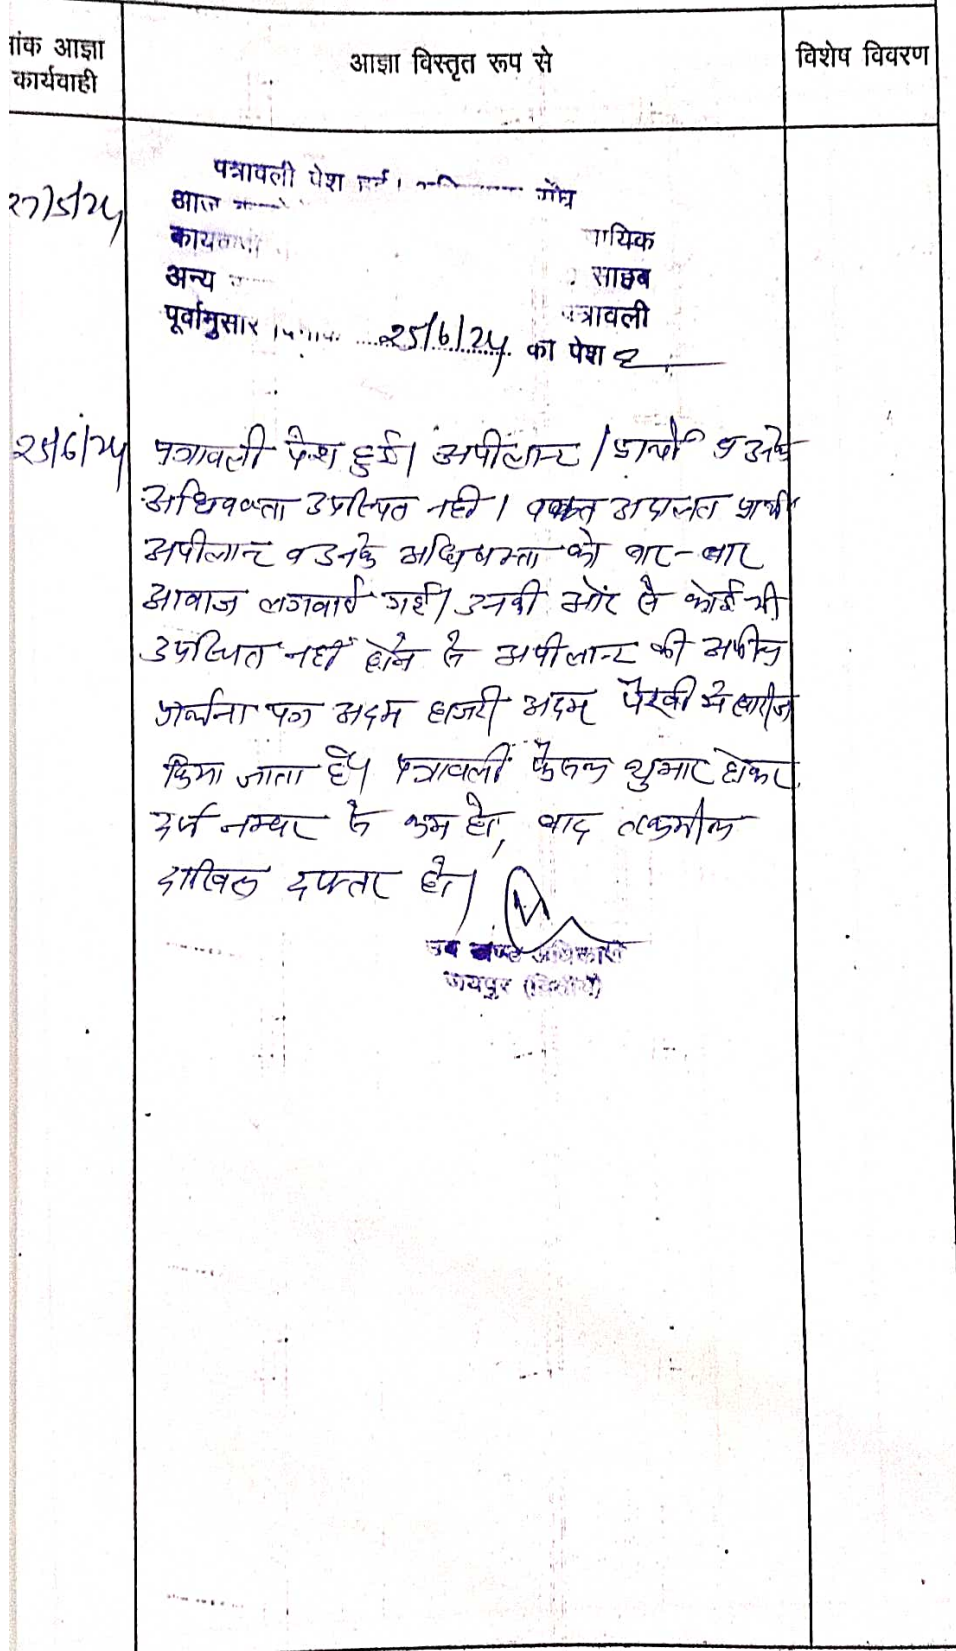 नांक आज्ञा
कार्यवाही
आज्ञा विस्तृत रूप से
विशेष विवरण
27/5/24
पत्रावली पेश हुई।
आज
कार्यवाही
अन्य साहब
पूर्वानुसार पत्रावली
25/6/24 को पेश हो
25/6/24
पत्रावली पेश हुई। अपीलान्ट / प्रार्थी व उनके
अधिवक्ता उपस्थित नहीं। वक्त अदालत प्रार्थी
अपीलान्ट व उनके अधिवक्ता को बार-बार
आवाज लगवाई गई। उनकी ओर से कोई भी
उपस्थित नहीं होने से अपीलान्ट की अपील
प्रार्थना पत्र अदम हाजरी अदम पैरवी में खारीज
किया जाता है। पत्रावली फैसल शुमार होकर
दर्ज नम्बर से कम हो, बाद तकमील
दाखिल दफ्तर हो।
उप खण्ड अधिकारी
जयपुर (द्वितीय)